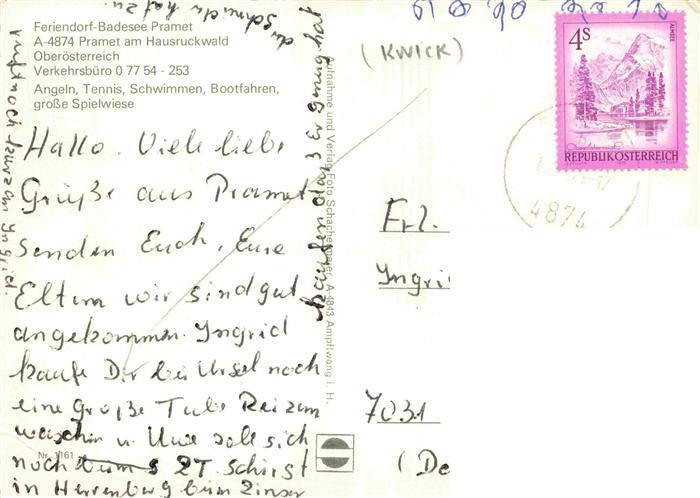 Feriendorf-Badesee Pramet
A-4874 Pramet am Hausruckwald
Oberösterreich
Verkehrsbüro 0 77 54 - 253
Angeln, Tennis, Schwimmen, Bootfahren,
große Spielwiese
Hallo. Viele liebe
Grüße aus Pramet
senden Euch, Eure
Eltern wir sind gut
angekommen. Ingrid
kaufe Dir bei Ursel noch
eine große Tube Rei zum
waschen u. Uwe solls sich
noch 2 T. Schirst
in Herrenberg beim Zinser
kaufen das 3 Er Genug hat
ruft noch kurz an Ingrid.
Nr. 1161
Aufnahme und Verlag Foto Schachermaier, A-4843 Ampflwang i. H.
(KWICK)
4 S
ALMSEE
REPUBLIK ÖSTERREICH
4874
Frl.
Ingri
7031
(De